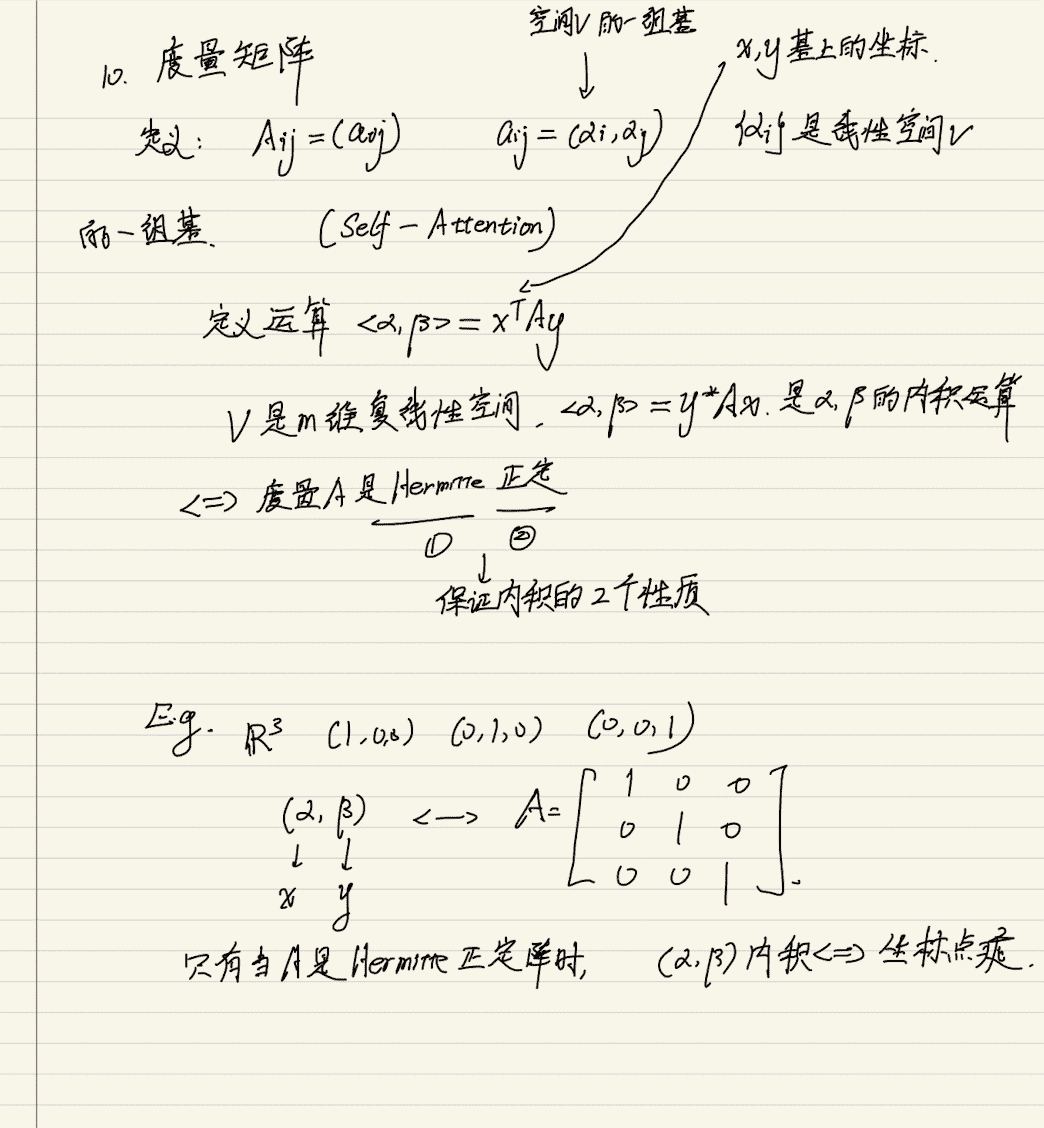 空间V的一组基
10. 度量矩阵
x,y基上的坐标.
定义: Aij=(aij) aij=(αi,αj) {αi}是线性空间V
的一组基. (Self-Attention)
定义运算 <α,β>=xᵀAy
V是n维复线性空间. <α,β>=y*Ax.是α,β的内积运算
<=> 度量A是Hermite 正定
① ②
保证内积的2个性质
E.g. ℝ³ (1,0,0) (0,1,0) (0,0,1)
(α,β) <-> A= [ 1 0 0
0 1 0
x y 0 0 1 ].
只有当A是Hermite正定阵时, (α,β)内积<=>坐标点乘.